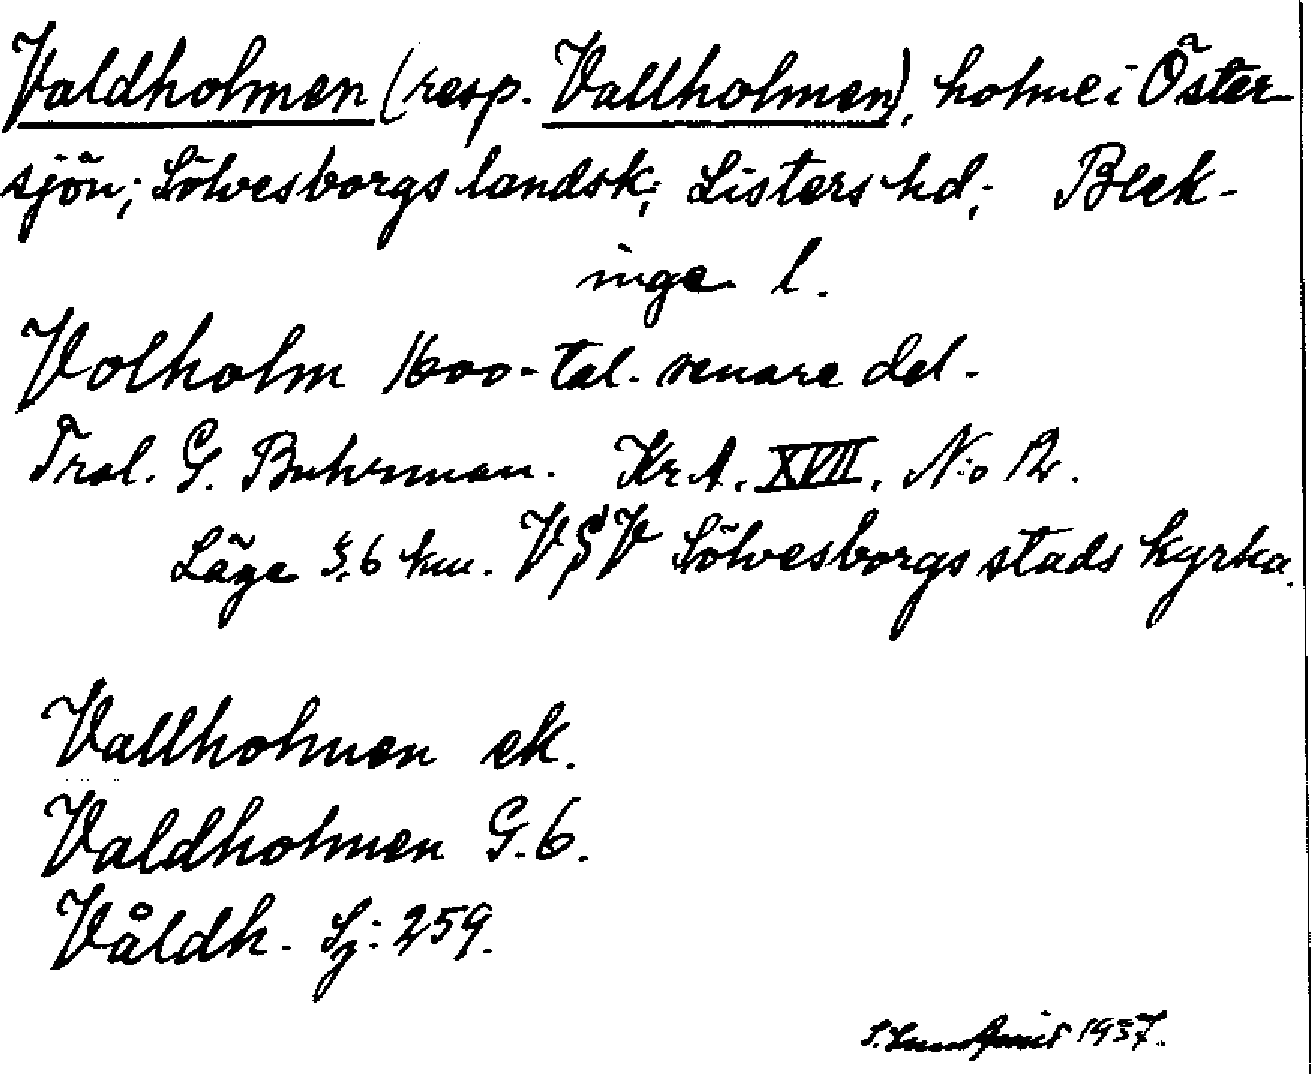 Valdholmen (resp. Vallholmen), holme i Öster-
sjön; Sölvesborgs landsk; Listers hd; Blek-
inge l.
Volholm 1600-tal. senare del.
Trol. G. Buhrman. Kr A. XVII. N:o 12.
Läge 5.6 km. VSV Sölvesborgs stads kyrka.
Vallholmen ek.
Valdholmen G.6.
Våldh. Sj: 259.
1937.